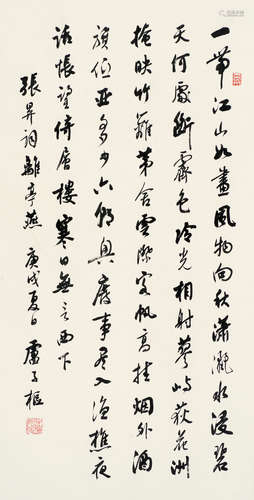 一帶江山如畫風物向秋瀟灑水浸碧
天何處斷霽色冷光相射蓼嶼荻花洲
掩映竹籬茅舍雲際客帆高挂烟外酒
旗低亞多少六朝興廢事盡入漁樵夜
話悵望倚層樓寒日無言西下
張昇詞離亭燕 庚戌夏日 盧子樞